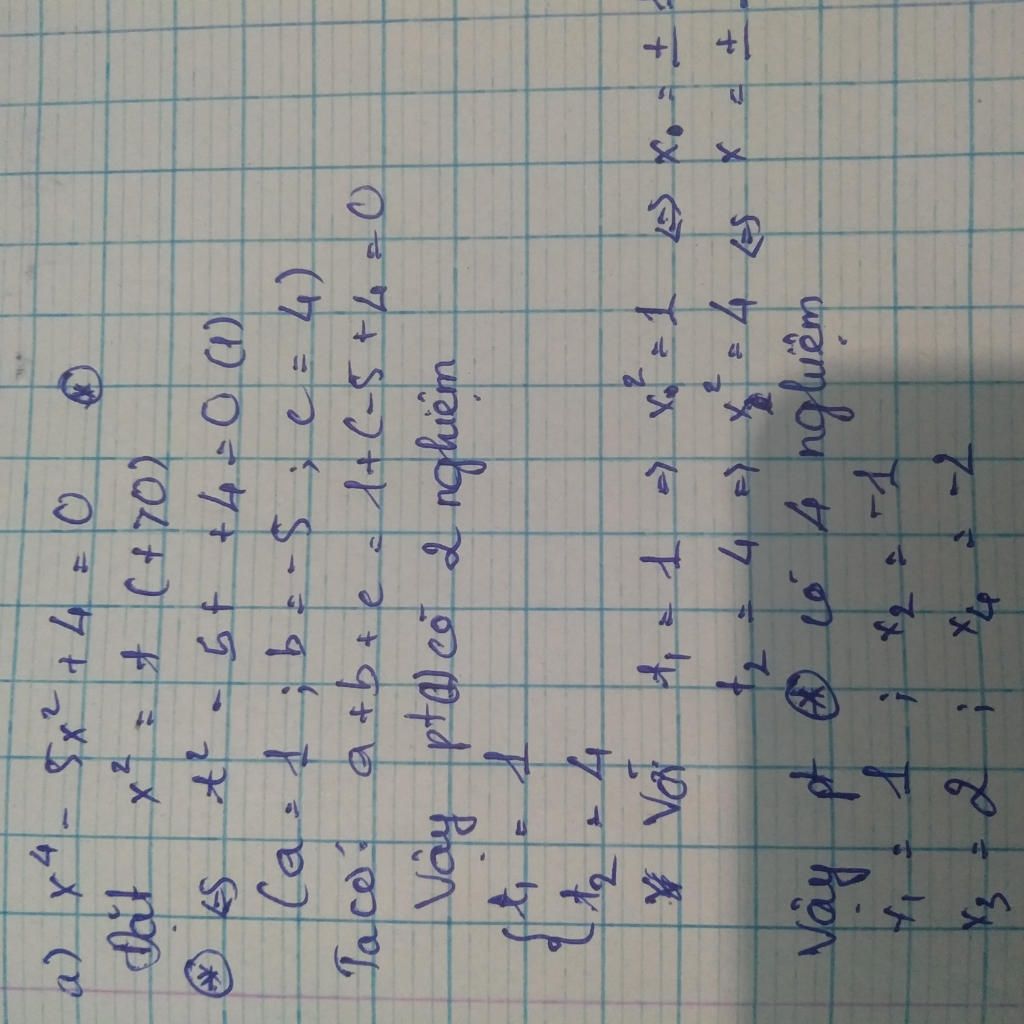 a) x⁴ - 5x² + 4 = 0 (*)
Đặt x² = t (t ≥ 0)
(*) ⇔ t² - 5t + 4 = 0 (1)
(a = 1 ; b = -5 ; c = 4)
Ta có: a + b + c = 1 + (-5 + 4 = 0
Vậy pt (1) có 2 nghiệm
{ t₁ = 1
t₂ = 4
* Với t₁ = 1 ⇒ x² = 1 ⇔ x = ±
t₂ = 4 ⇒ x² = 4 ⇔ x = ±
Vậy pt (*) có 4 nghiệm
x₁ = 1 ; x₂ = -1
x₃ = 2 ; x₄ = -2